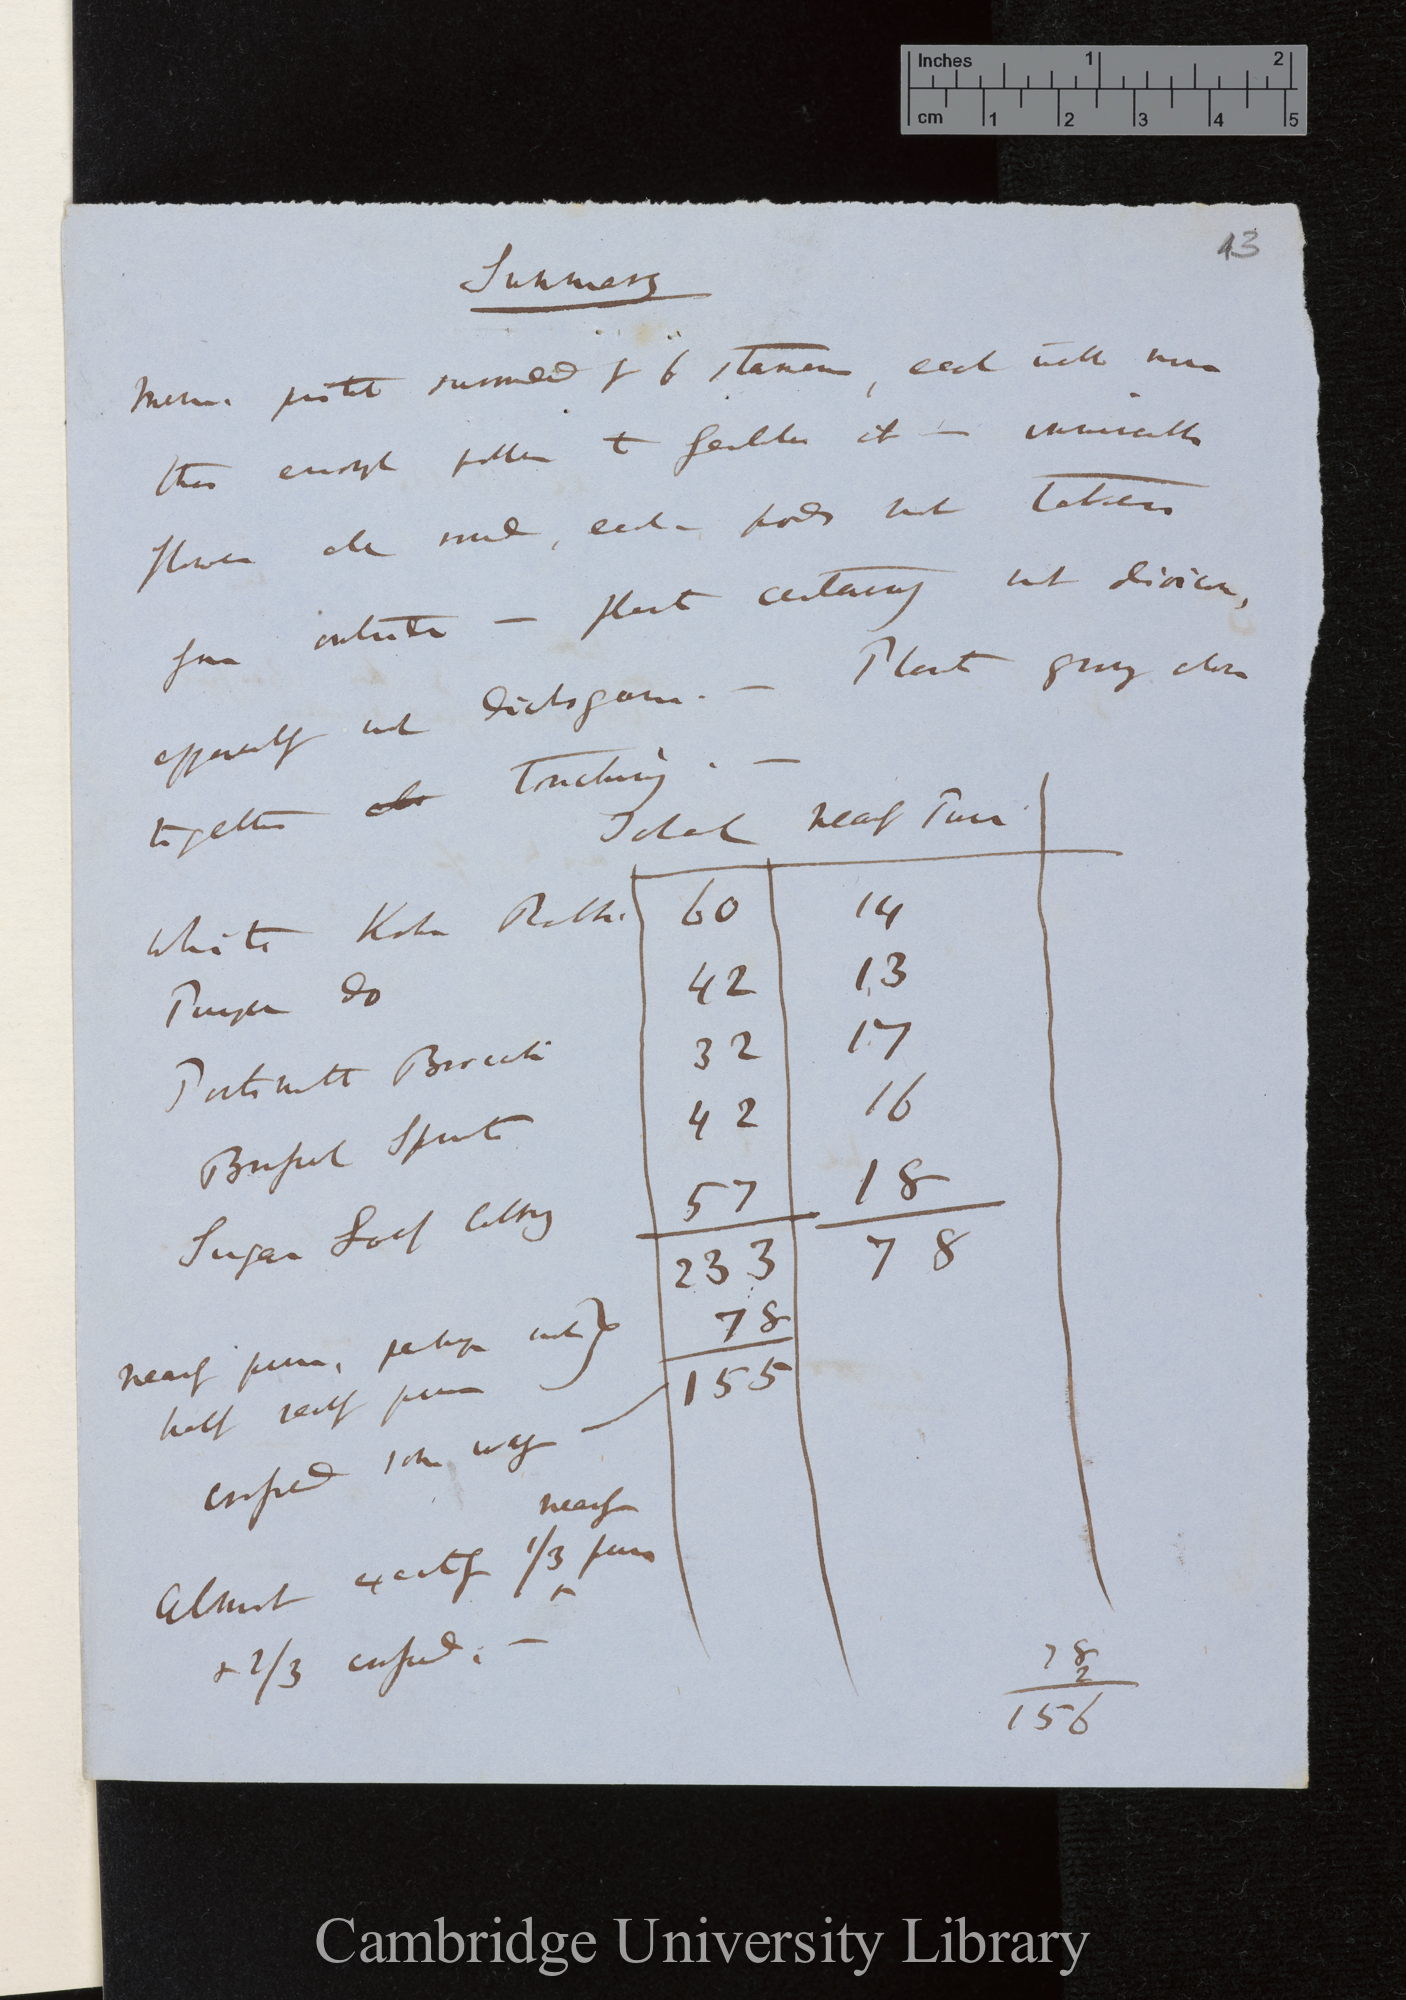 Inches 1 2
cm 1 2 3 4 5
13
Summary
pistil surrounded by 6 stamens, each with more
than enough pollen to fertilise it — innumerable
flowers also round, each pods not taken
from outside — plant certainly not dioicous,
apparently not dichogamous. — Plants growing close
together also touching. —
Total nearly Pure
White Kohn Rabbi 60 14
Purple do 42 13
Portsmouth Brocoli 32 17
Brussel Sprouts 42 16
Sugar Loaf Cabbag 57 18
233 78
nearly pure, perhaps not 78
half really pure 155
crossed some way
nearly
Almost exactly 1/3 pure
+ 2/3 crossed. —
78
2
156
Cambridge University Library